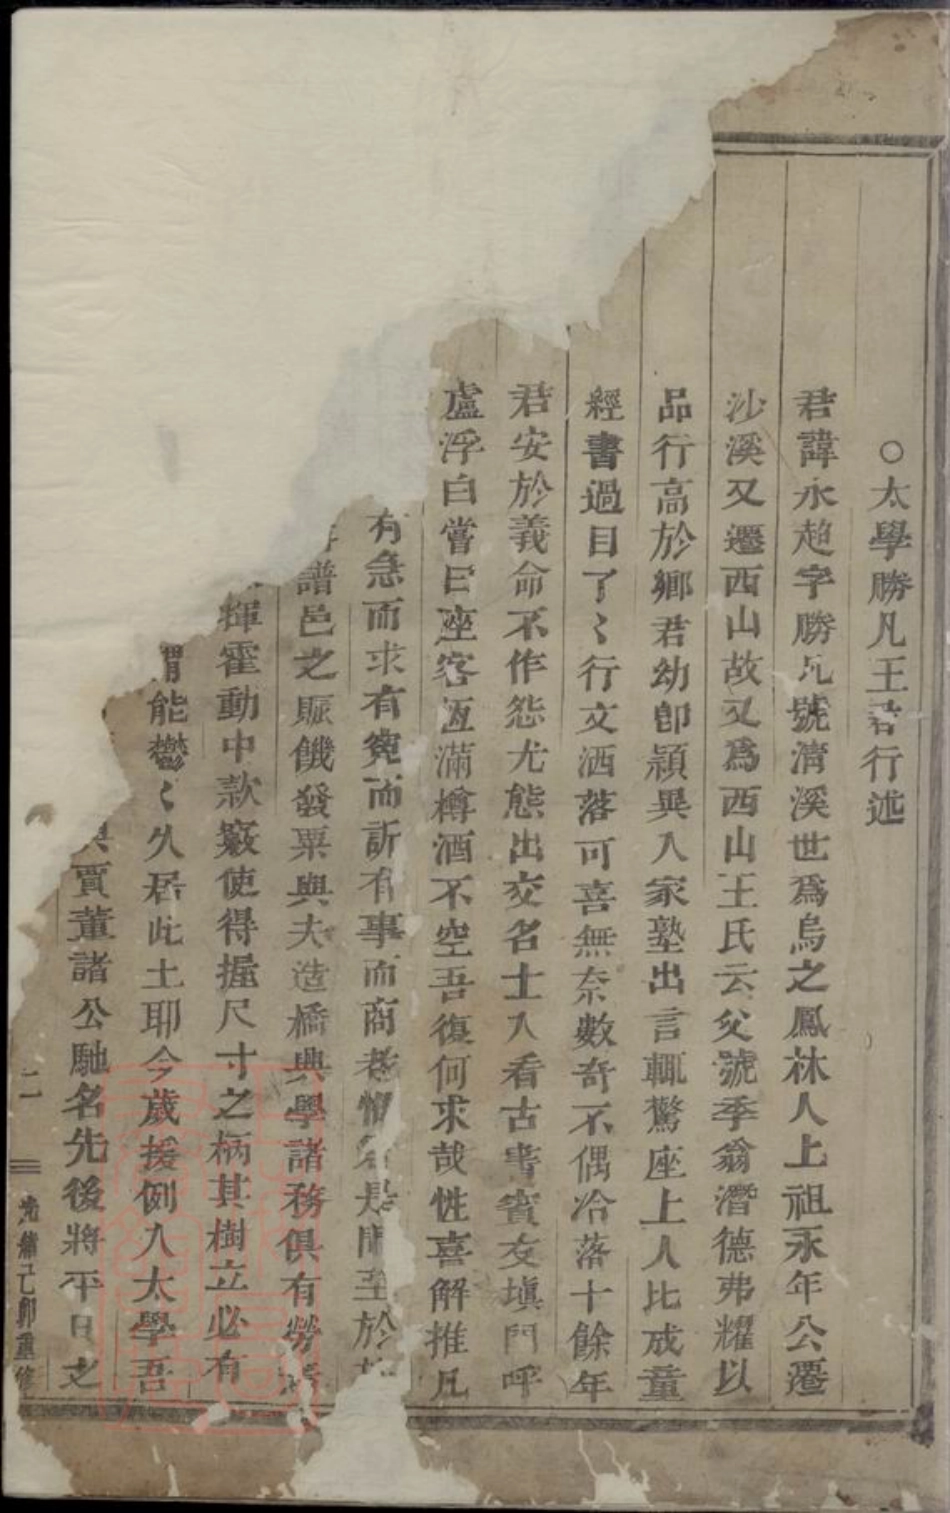 ○太學勝凡王君行述
君諱永趙字勝凡號清溪世爲烏之鳳林人上祖永年公遷
沙溪又遷西山故又爲西山王氏云父號季翁潛德弗耀以
品行高於鄉君幼卽穎異入家塾出言輒驚座上人比成童
經書過目了〻行文洒落可喜無奈數奇不偶冾落十餘年
君安於義命不作怨尤態出交名士入看古書賓友塡門呼
盧浮白嘗曰座客恆滿樽酒不空吾復何求哉性喜解推凡
有急而求有寃而訴有事而商者惟君是聞至於
譜邑之賑饑發粟與夫造橋興學諸務俱有勞
揮霍動中款竅使得握尺寸之柄其樹立必有
謂能鬱〻久居此土耶今歲援例入太學吾
與賈董諸公馳名先後將平日之
二 光緖己卯重修